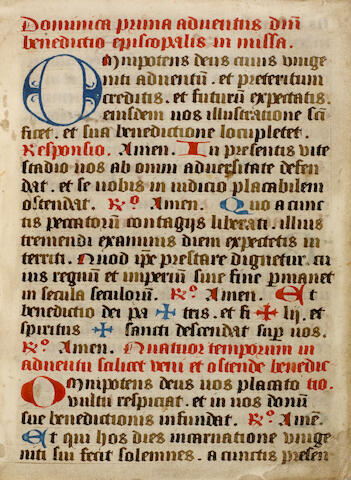 Dominica prima aduentus dm̄
benedictio episcopalis in missa.
Omnipotens deus cuius vnige
niti aduentū . et preteritum
creditis . et futurū expectatis .
eiusdem nos illustratione scī
ficet . et sua benedictione locupletet .
Responsio . Amen . In presentis vite
stadio nos ab omni aduersitate defen
dat . et se nobis in iudicio placabilem
ostendat . R̷º Amen . Quo a cunc
tis peccatorū contagijs liberati . illius
tremendi examinis diem expectetis in
territi . Quod ip̄e prestare dignetur . cu
ius regnū et imperiū sine fine p̄manet
in secula seculorū . R̷º . Amen . Et
benedictio dei pa ✠ tris . et fi ✠ lij . et
spiritus ✠ sancti descendat suꝑ nos .
R̷º . Amen . Quatuor temporum in
aduentu scilicet veni et ostende benedic
Omnipotens deus nos placato tio .
vultu respiciat . et in nos donū
sue benedictionis infundat . R̷º . Amē .
Et qui hos dies incarnatione vnige
niti sui fecit solemnes . a cunctis presen